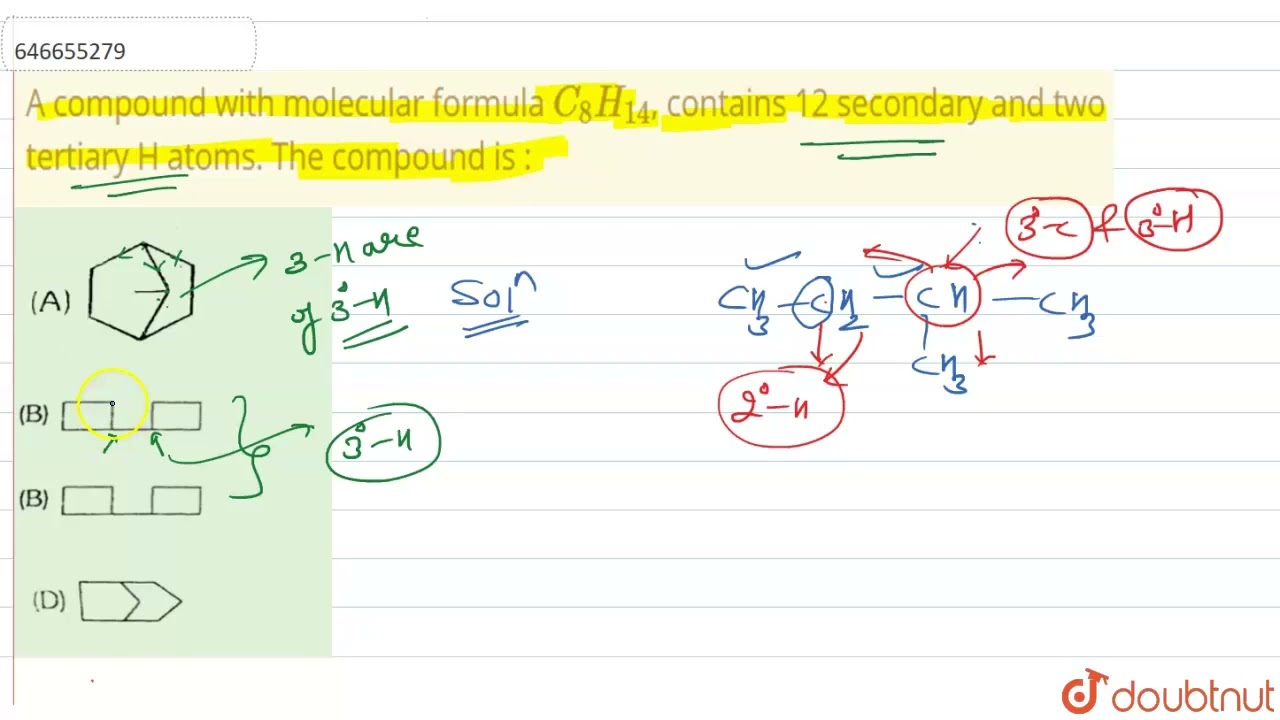 646655279
A compound with molecular formula C₈H₁₄, contains 12 secondary and two
tertiary H atoms. The compound is :
(A)
3-H are
of 3°-H
Solⁿ
3°-c & 3°-H
CH₃ — CH₂ — CH — CH₃
CH₃
2°-H
(B)
3°-H
(B)
(D)
doubtnut